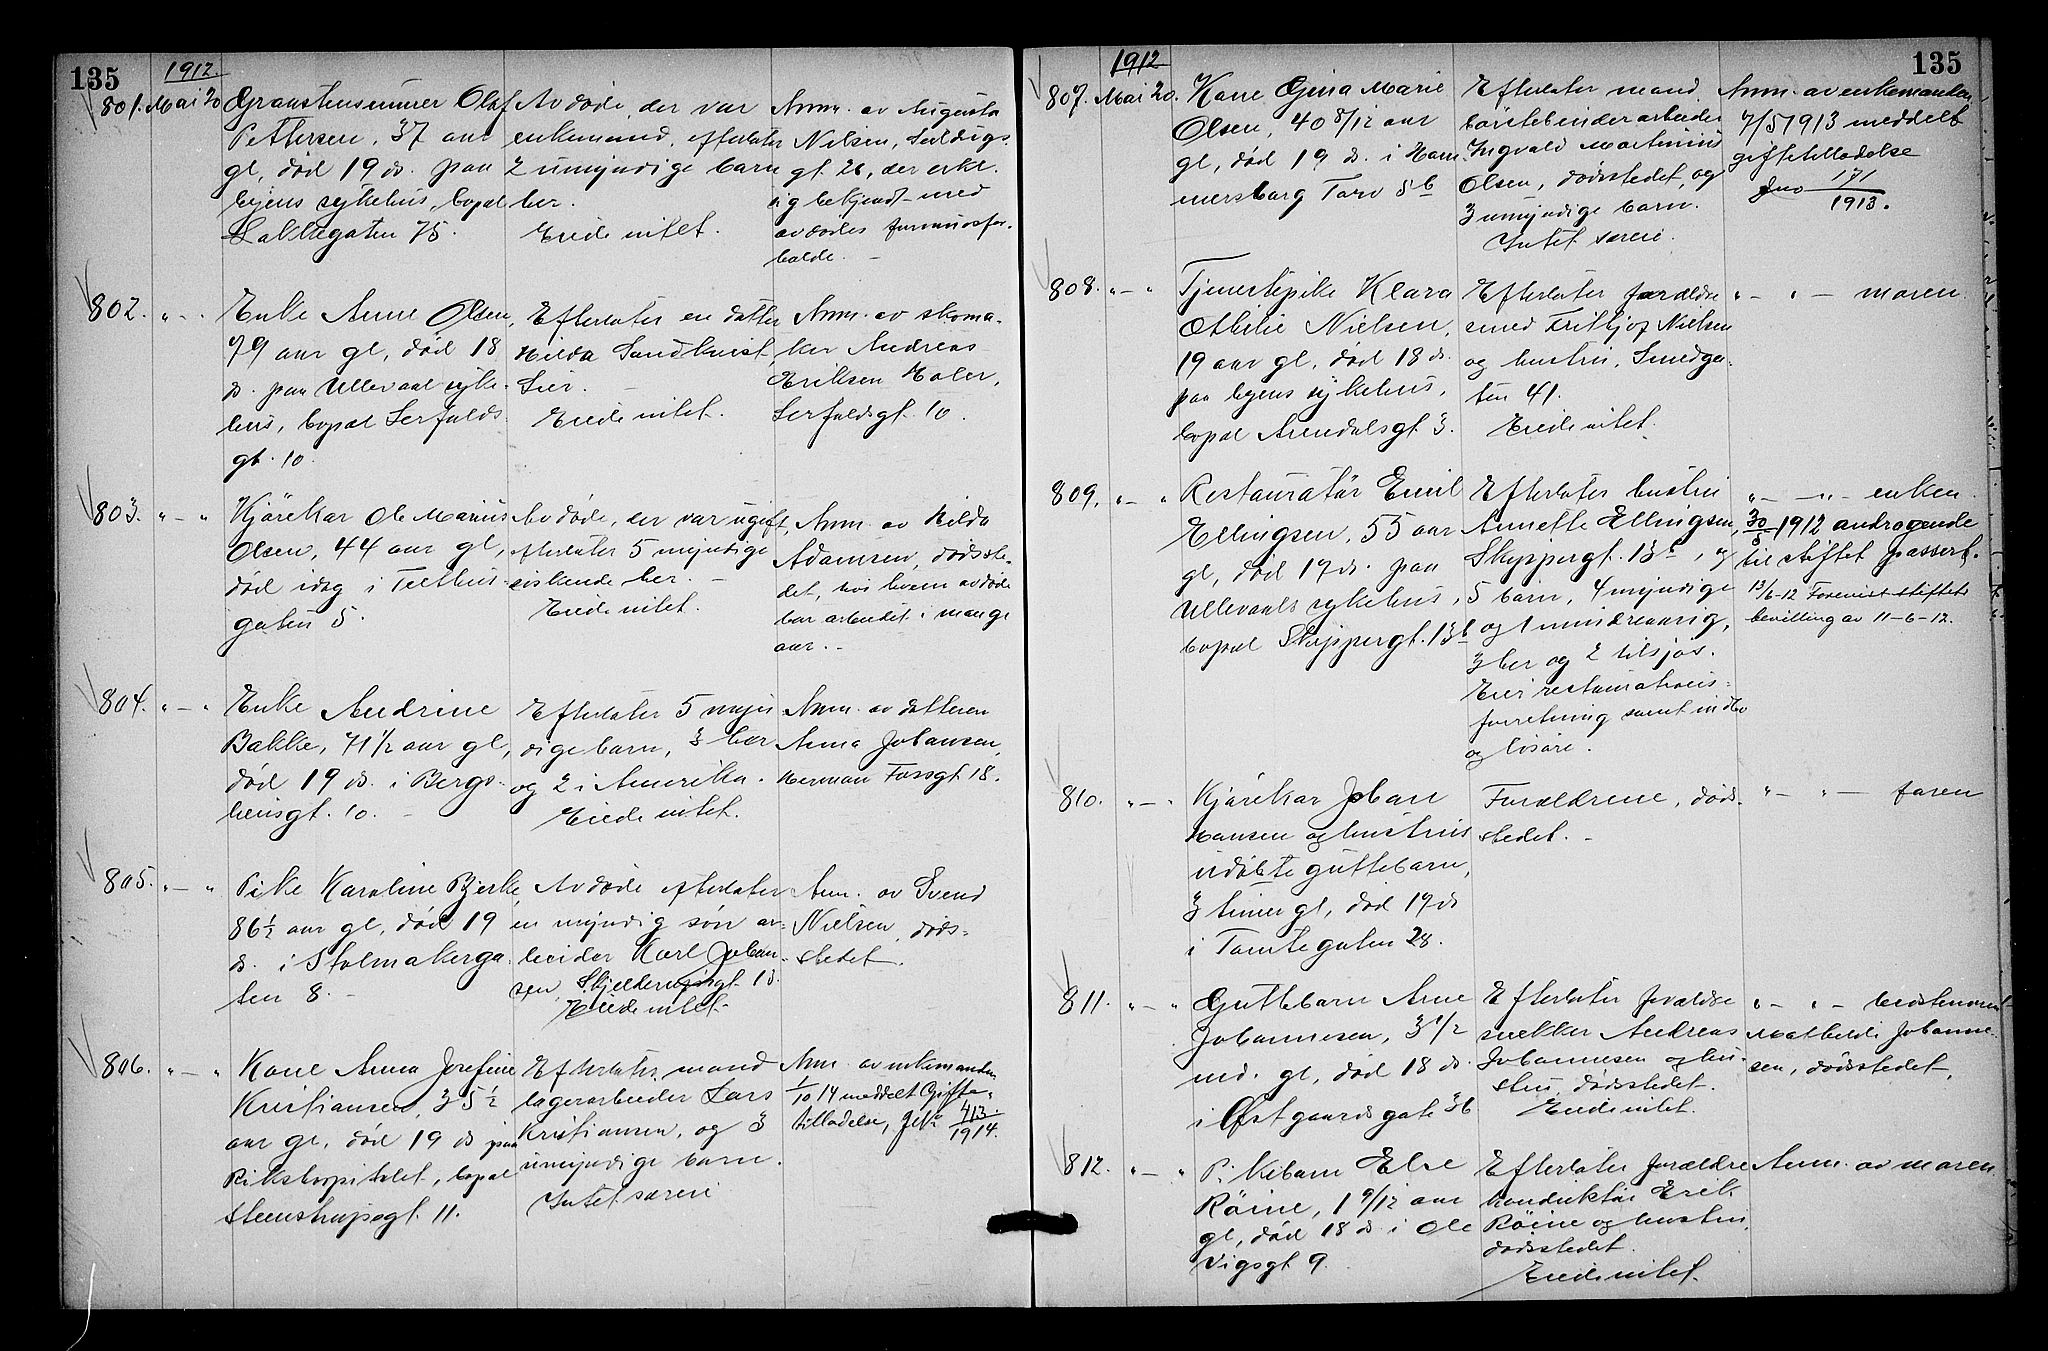 135
1912.
801. Mai 20
Granstensmurer Olaf
Pettersen, 37 aar
gl, död 19 ds. paa
byens sykehus, bopæl
Lakkegaten 75.
Avdöde, der var
enkemand, efterlater
2 umyndige barn
her.
Eiede intet.
Anm. av Augusta
Nilsen,
gt. 26, der erkl.
sig bekjendt med
avdödes formuesfor-
holde. -
802. " - "
Enke Anne Olsen,
79 aar gl, död 18
ds. paa Ullevaal syke-
hus, bopæl Serfalds
gt. 10.
Efterlater en datter
Hilda Sandkvist,
Lier. -
Eiede intet.
Anm. av skoma-
ker Andreas
Eriksen Holer,
Serfaldsgt. 10.
803. " - "
Kjörekar Ole Marius
Olsen, 44 aar gl,
död idag i Telthus-
gaten 5.
Avdöde, der var ugift,
efterlater 5 myndige
söskende her. -
Eiede intet.
Anm. av Hilda
Adamsen, dödsste-
det, hos hvem avdöde
har arbeidet i mange
aar. -
804. " - "
Enke Andrine
Bakke, 71 1/2 aar gl,
död 19 ds. i Bergs-
liensgt. 10. -
Efterlater 5 myn
dige barn, 3 her
og 2 i Amerika.
Eiede intet.
Anm. av datteren
Anna Johansen,
Herman Fossgt. 18.
805. " - "
Pike Karoline Bjerke,
86 1/2 aar gl, död 19
ds. i Stolmakerga
ten 8. -
Avdöde efterlater
en myndig sön ar-
beider Karl Johan-
sen, Skjelderupsgt. 18.
Eiede intet.
Anm. av Svend
Nielsen, döds-
stedet.
806. " - "
Kone Anna Josefine
Kristiansen, 35 1/2
aar gl, död 19 ds paa
Rikshospitalet, bopæl
Steenstrupsgt. 11.
Efterlater mand
lagerarbeider Lars
Kristiansen, og 3
umyndige barn.
Intet særeie
Anm. av enkemanden
1/10 14 meddelt Gifte-
tilladelse, Jno 413/1914.
135
1912
807. Mai 20.
Kone Gina Marie
Olsen, 40 8/12 aar
gl, död 19 ds. i Ham
mersborg Torv 5b
Efterlater mand
börstebinderarbeider
Ingvald Martinius
Olsen, dödsstedet, og
3 umyndige barn.
Intet særeie.
Anm. av enkemanden
7/5 1913 meddelt
giftetilladelse
Jno 171/1913.
808. " - "
Tjenestepike Klara
Othilie Nielsen,
19 aar gl, död 18 ds.
paa byens sykehus,
bopæl Arendalsgt. 3.
Efterlater forældre
smed Frithjof Nielsen
og hustru, Smedga-
ten 41.
Eiede intet.
" - " - moren.
809. " - "
Restauratör Emil
Ellingsen, 55 aar
gl, död 17 ds. paa
Ullevaals sykehus,
bopæl Skippergt. 13b
Efterlater hustru
Annette Ellingsen,
Skippergt. 13b, og
5 barn, 4 myndige
og 1 mindreaarig,
3 her og 2 tilsjös.
Eier restaurations-
forretning samt indbo
og lösöre.
" - " - enken.
30/5 1912 andragende
til stiftet passert.
13/6-12 Forevist stiftets
bevilling av 11-6-12.
810. " - "
Kjörekar Johan
Hansen og hustrus
udöbte guttebarn,
3 timer gl, död 19 ds
i Tomtegaten 28.
Forældrene, döds-
stedet. -
" - " - faren
811. " - "
Guttebarn Arne
Johannesen, 3 1/2
md. gl, död 18 ds.
i Östgaardsgate 36
Efterlater forældre
snekker Andreas
Johannesen og hu-
stru, dödsstedet.
Eiede intet.
" - " - bestemoren
Mathilde Johanne-
sen, dödsstedet.
812. " - "
Pikebarn Else
Röine, 1 9/12 aar
gl, död 18 ds i Ole
Vigsgt 9.
Efterlater forældre
konduktör Erik
Röine og hustru,
dödsstedet.
Eiede intet.
Anm. av moren